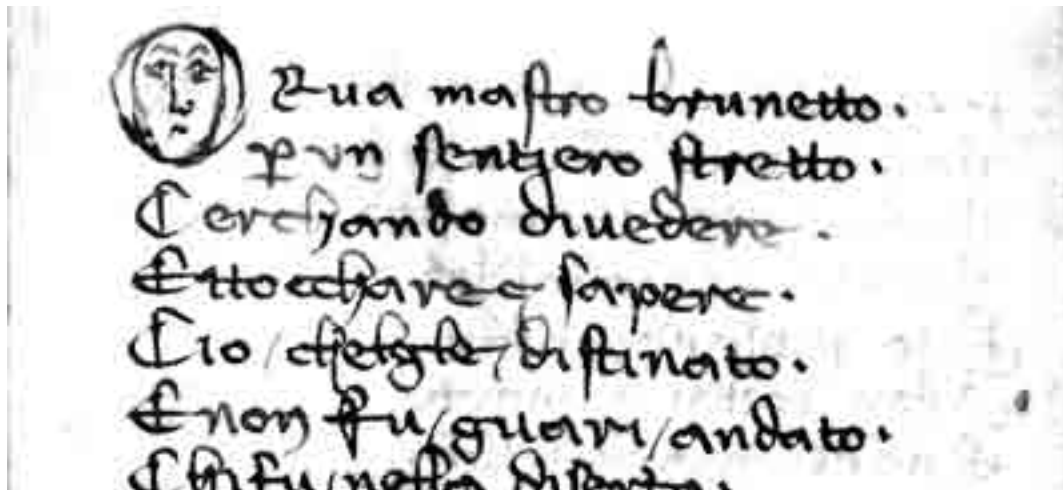 Or ua mastro brunetto.
p vn sentjero stretto.
Cerchando diuedere.
Ettocchare e sapere.
Cio / chelgle / distinato.
E non fu / guari / andato.
Chi fu / nella diserta.